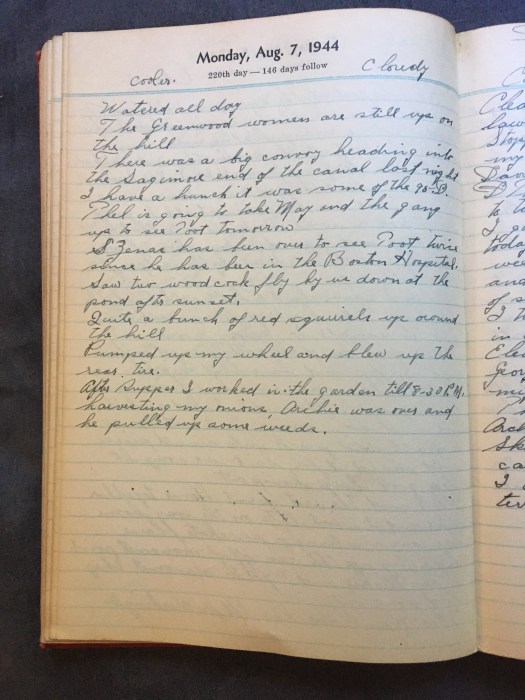 Monday, Aug. 7, 1944
220th day — 146 days follow
cooler. Cloudy
Watered all day
The Greenwood women are still up on
the hill
There was a big convoy heading into
the Sagimore end of the canal last night
I have a hunch it was some of the
Phel is going to take May and the gang
up to see Toot tomorrow
has been over to see Toot twice
since he has been in the Boston Hospital.
Saw two woodcock fly by us down at the
pond after sunset.
Quite a bunch of red squirrels up around
the hill
Pumped up my wheel and blew up the
rear tire.
After supper I worked in the garden till 8-30 P.M.
harvesting my onions, Archie was over and
he pulled up some weeds.